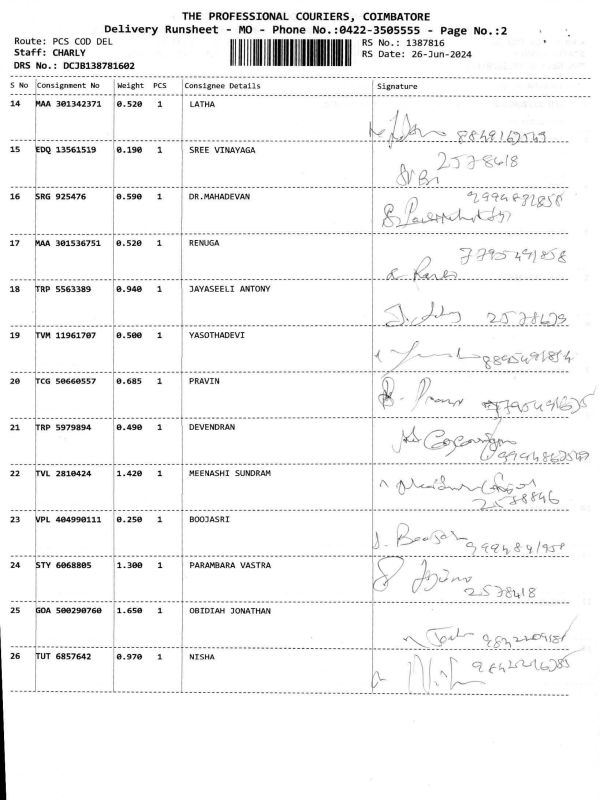 THE PROFESSIONAL COURIERS, COIMBATORE
Delivery Runsheet - MO - Phone No.:0422-3505555 - Page No.:2
Route: PCS COD DEL RS No.: 1387816
Staff: CHARLY RS Date: 26-Jun-2024
DRS No.: DCJB138781602
S No Consignment No Weight PCS Consignee Details Signature
14 MAA 301342371 0.520 1 LATHA
15 EDQ 13561519 0.190 1 SREE VINAYAGA
2578418
16 SRG 925476 0.590 1 DR.MAHADEVAN
17 MAA 301536751 0.520 1 RENUGA
7795491858
18 TRP 5563389 0.940 1 JAYASEELI ANTONY
2578629
19 TVM 11961707 0.500 1 YASOTHADEVI
20 TCG 50660557 0.685 1 PRAVIN
21 TRP 5979894 0.490 1 DEVENDRAN
22 TVL 2810424 1.420 1 MEENASHI SUNDRAM
2588846
23 VPL 404990111 0.250 1 BOOJASRI
24 STY 6068805 1.300 1 PARAMBARA VASTRA
2578418
25 GOA 500290760 1.650 1 OBIDIAH JONATHAN
26 TUT 6857642 0.970 1 NISHA